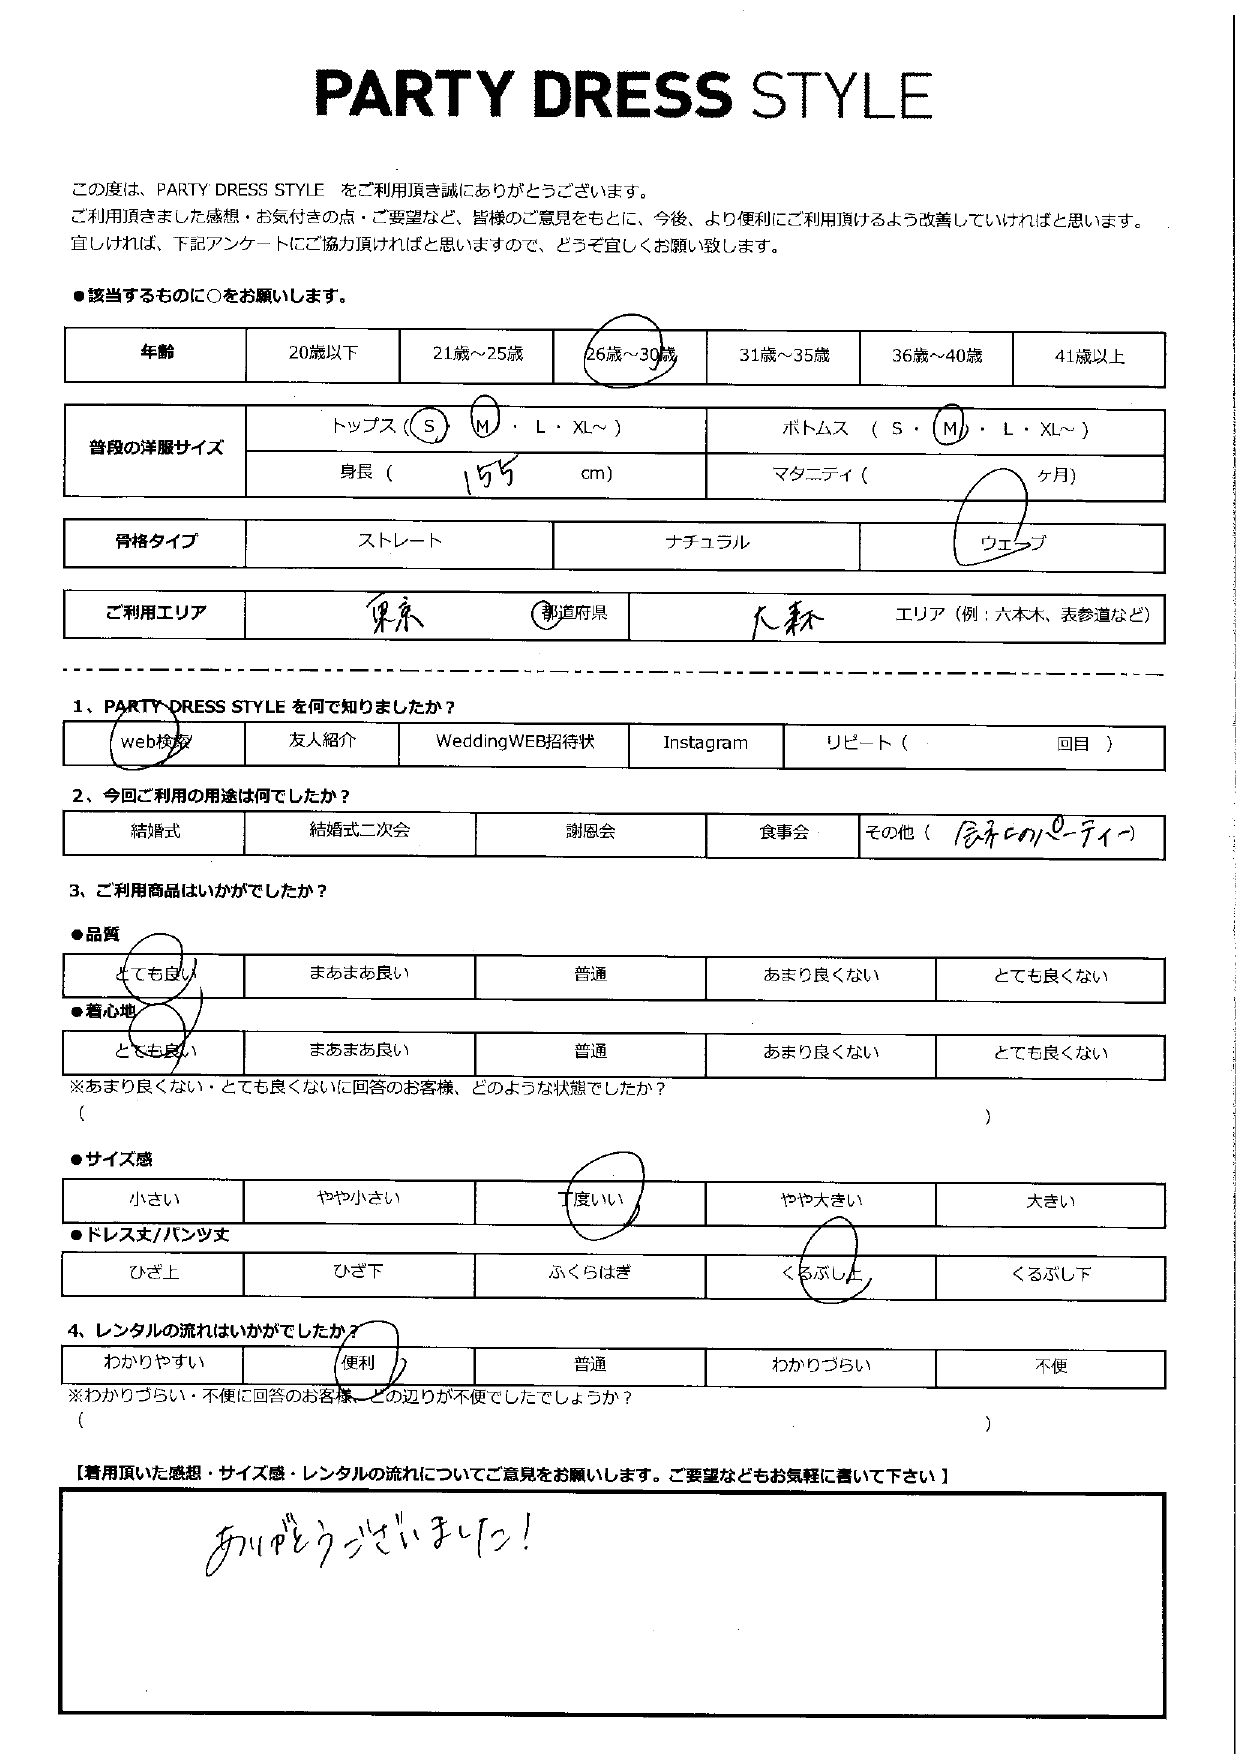 PARTY DRESS STYLE
この度は、PARTY DRESS STYLE をご利用頂き誠にありがとうございます。
ご利用頂きました感想・お気付きの点・ご要望など、皆様のご意見をもとに、今後、より便利にご利用頂けるよう改善していければと思います。
宜しければ、下記アンケートにご協力頂ければと思いますので、どうぞ宜しくお願い致します。
●該当するものに○をお願いします。
年齢 20歳以下 21歳～25歳 26歳～30歳 31歳～35歳 36歳～40歳 41歳以上
普段の洋服サイズ
トップス（ S ・ M ・ L ・ XL～ ） ボトムス （ S ・ M ・ L ・ XL～ ）
身長（ 155 cm） マタニティ（ ヶ月）
骨格タイプ ストレート ナチュラル ウェーブ
ご利用エリア 東京 都道府県 大森 エリア（例：六本木、表参道など）
1、PARTY DRESS STYLE を何で知りましたか？
web検索 友人紹介 WeddingWEB招待状 Instagram リピート（ 回目 ）
2、今回ご利用の用途は何でしたか？
結婚式 結婚式二次会 謝恩会 食事会 その他（ 会社のパーティー）
3、ご利用商品はいかがでしたか？
●品質
とても良い まあまあ良い 普通 あまり良くない とても良くない
●着心地
とても良い まあまあ良い 普通 あまり良くない とても良くない
※あまり良くない・とても良くないに回答のお客様、どのような状態でしたか？
（ ）
●サイズ感
小さい やや小さい 丁度いい やや大きい 大きい
●ドレス丈/パンツ丈
ひざ上 ひざ下 ふくらはぎ くるぶし上 くるぶし下
4、レンタルの流れはいかがでしたか？
わかりやすい 便利 普通 わかりづらい 不便
※わかりづらい・不便に回答のお客様、どの辺りが不便でしたでしょうか？
（ ）
【着用頂いた感想・サイズ感・レンタルの流れについてご意見をお願いします。ご要望などもお気軽に書いて下さい】
ありがとうございました！